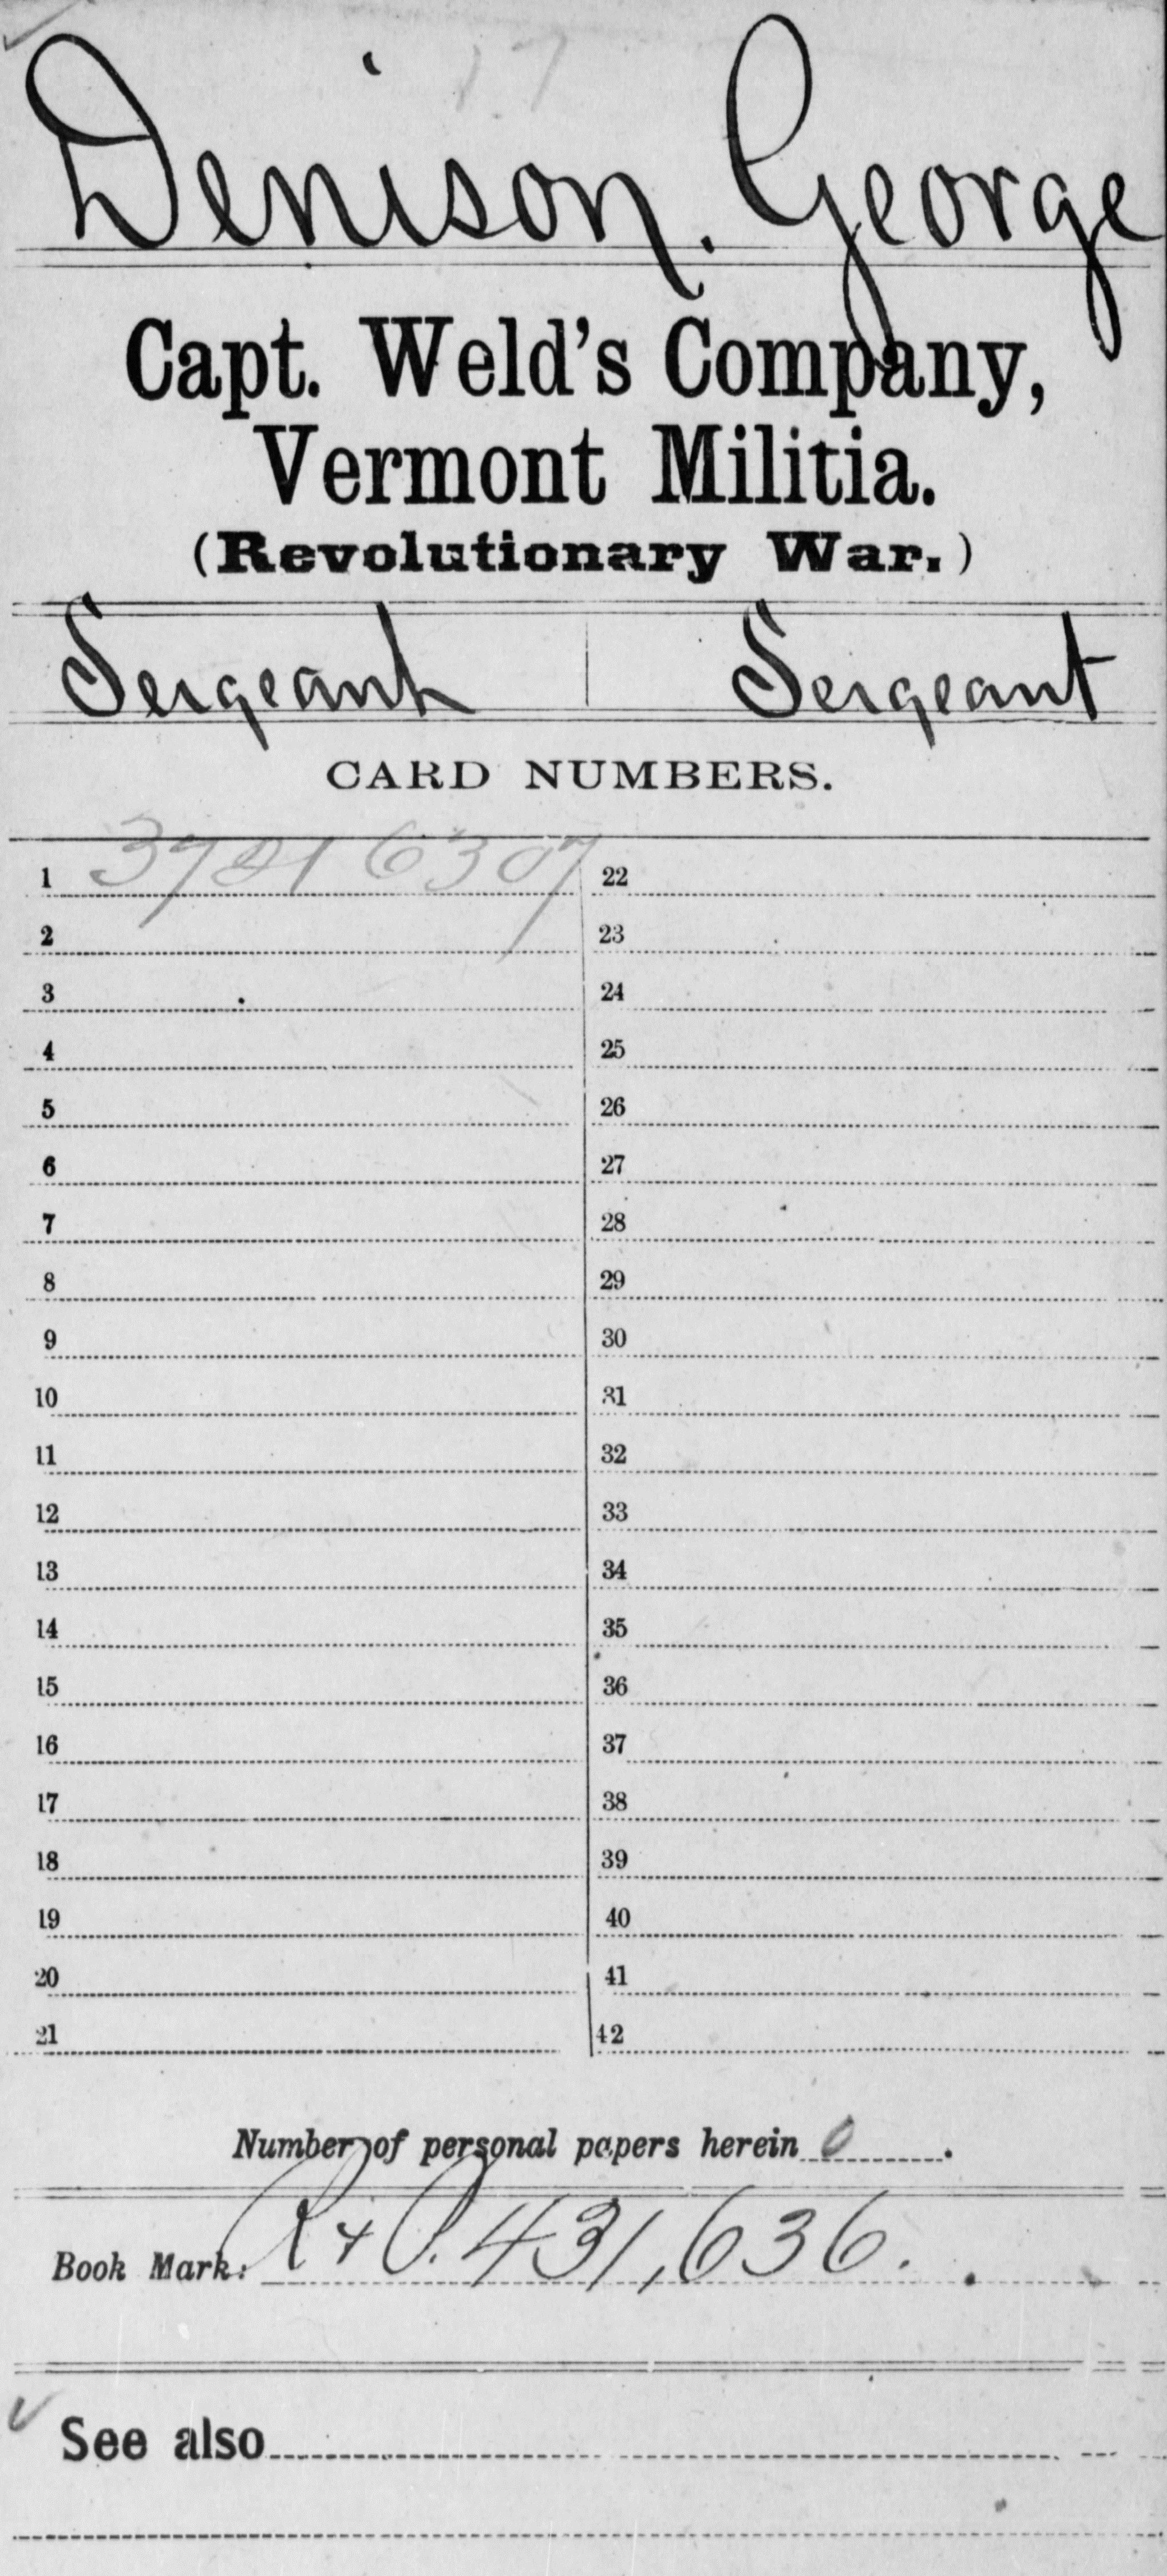 17
Denison, George
Capt. Weld's Company,
Vermont Militia.
(Revolutionary War.)
Sergeant | Sergeant
CARD NUMBERS.
1 37816307 22
2 23
3 24
4 25
5 26
6 27
7 28
8 29
9 30
10 31
11 32
12 33
13 34
14 35
15 36
16 37
17 38
18 39
19 40
20 41
21 42
Number of personal papers herein 0.
Book Mark: R & P. 431,636.
See also